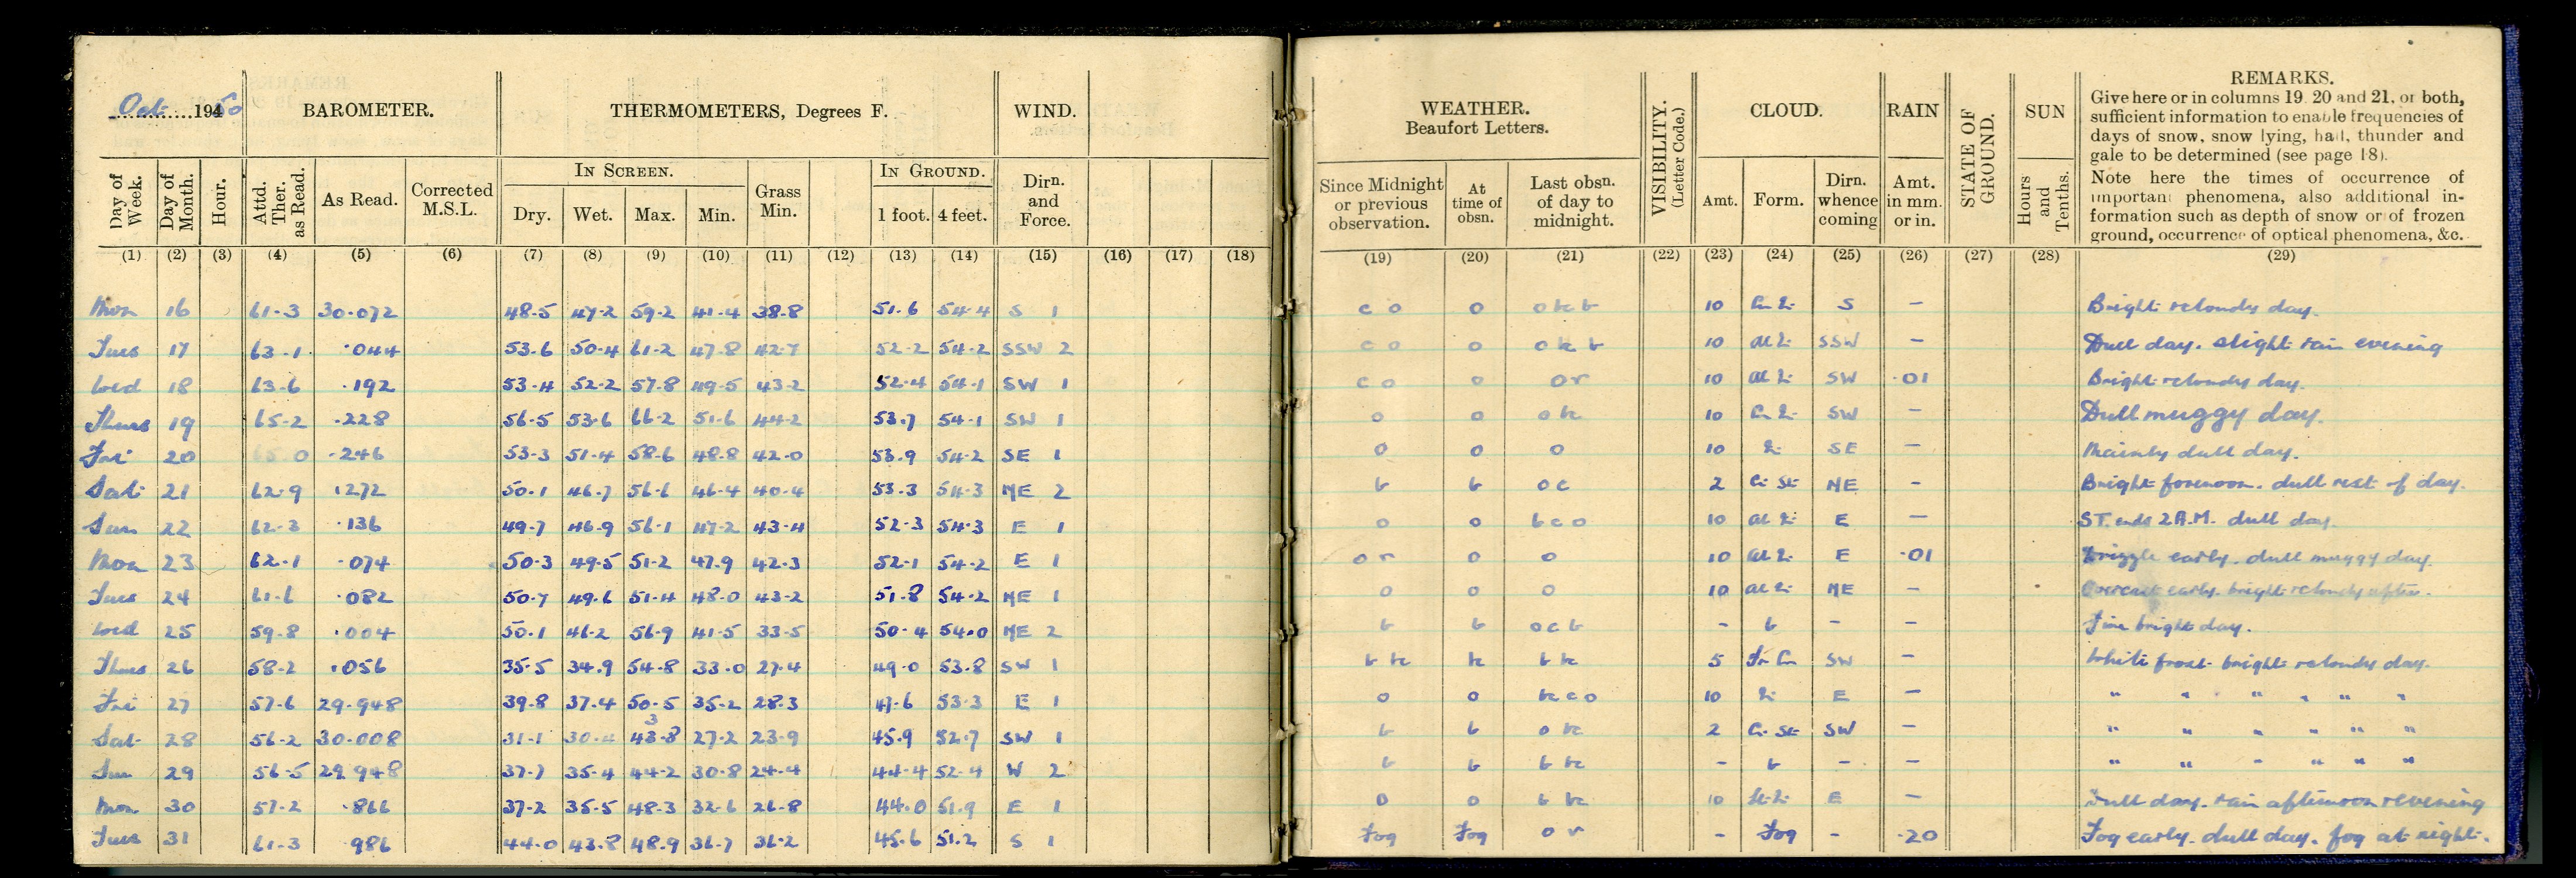 Oct 1950
BAROMETER.
THERMOMETERS, Degrees F.
WIND.
IN SCREEN.
IN GROUND.
Day of Week.
Day of Month.
Hour.
Attd. Ther. as Read.
As Read.
Corrected M.S.L.
Dry.
Wet.
Max.
Min.
Grass Min.
1 foot.
4 feet.
Dirn. and Force.
(1) (2) (3) (4) (5) (6) (7) (8) (9) (10) (11) (12) (13) (14) (15) (16) (17) (18)
Mon 16 61.3 30.072 48.5 47.2 59.2 41.4 38.8 51.6 54.4 S 1
Tues 17 63.1 .044 53.6 50.4 61.2 47.8 42.7 52.2 54.2 SSW 2
Wed 18 63.6 .192 53.4 52.2 57.8 49.5 43.2 52.4 54.1 SW 1
Thurs 19 65.2 .228 56.5 53.6 66.2 51.6 44.2 53.7 54.1 SW 1
Fri 20 65.0 .246 53.3 51.4 58.6 48.8 42.0 53.9 54.2 SE 1
Sat 21 62.9 .272 50.1 46.7 56.6 46.4 40.4 53.3 54.3 NE 2
Sun 22 62.3 .136 49.7 46.9 56.1 47.2 43.4 52.3 54.3 E 1
Mon 23 62.1 .074 50.3 49.5 51.2 47.9 42.3 52.1 54.2 E 1
Tues 24 61.6 .082 50.7 49.6 51.4 48.0 43.2 51.8 54.2 NE 1
Wed 25 59.8 .004 50.1 46.2 56.9 41.5 33.5 50.4 54.0 NE 2
Thurs 26 58.2 .056 35.5 34.9 54.8 33.0 27.4 49.0 53.8 SW 1
Fri 27 57.6 29.948 39.8 37.4 50.5 35.2 28.3 47.6 53.3 E 1
Sat 28 56.2 30.008 31.1 30.4 43.8 27.2 23.9 45.9 52.7 SW 1
Sun 29 56.5 29.948 37.7 35.4 44.2 30.8 24.4 44.4 52.4 W 2
Mon 30 57.2 .866 37.2 35.5 48.3 32.6 26.8 44.0 51.9 E 1
Tues 31 61.3 986 44.0 43.8 48.9 36.7 36.2 45.6 51.2 S 1
WEATHER.
Beaufort Letters.
VISIBILITY.
(Letter Code.)
CLOUD.
RAIN
STATE OF GROUND.
SUN
REMARKS.
Give here or in columns 19 20 and 21, or both,
sufficient information to enable frequencies of
days of snow, snow lying, hail, thunder and
gale to be determined (see page 18).
Note here the times of occurrence of
important phenomena, also additional in-
formation such as depth of snow or of frozen
ground, occurrence of optical phenomena, &c.
Since Midnight or previous observation.
At time of obsn.
Last obsn. of day to midnight.
Amt.
Form.
Dirn. whence coming
Amt. in mm. or in.
Hours and Tenths.
(19) (20) (21) (22) (23) (24) (25) (26) (27) (28) (29)
c o o o 10 S — Bright & cloudy day.
c o o o 10 SSW — Dull day. slight rain evening
c o o o r 10 SW .01 Bright & cloudy day.
o o o 10 SW — Dull muggy day.
o o o 10 SE — Mainly dull day.
b b o c 2 Ci St NE - Bright forenoon. dull rest of day.
o o b c o 10 E — ST. ends 2 A.M. dull day.
o r o o 10 E .01 Drizzle early. dull muggy day.
o o o 10 NE — Overcast early. bright & cloudy after.
b b o c b - b - — Fine bright day.
5 SW — White frost. bright & cloudy day.
o o 10 E — " " " " " "
b b 2 Ci St SW — " " " " " "
b b - b - — " " " " " "
o o 10 E — Dull day. rain afternoon & evening
Fog Fog o r - Fog - .20 Fog early. dull day. fog at night.